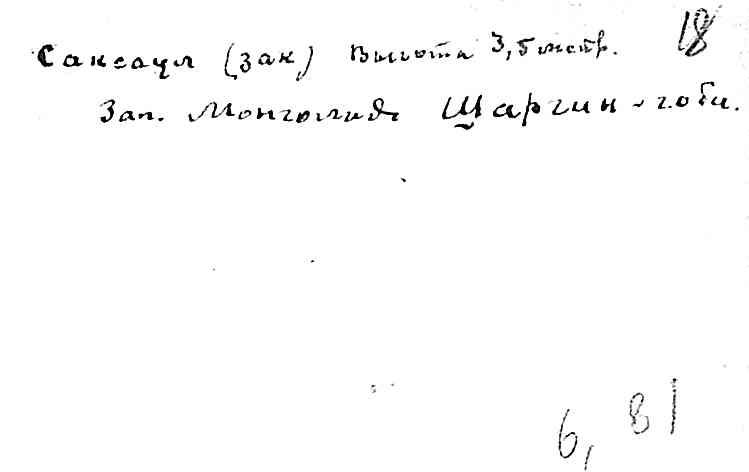 Саксаул (зак) Высота 3,5 метр. 18
Зап. Монголия Шаргин-гоби.
6, 81